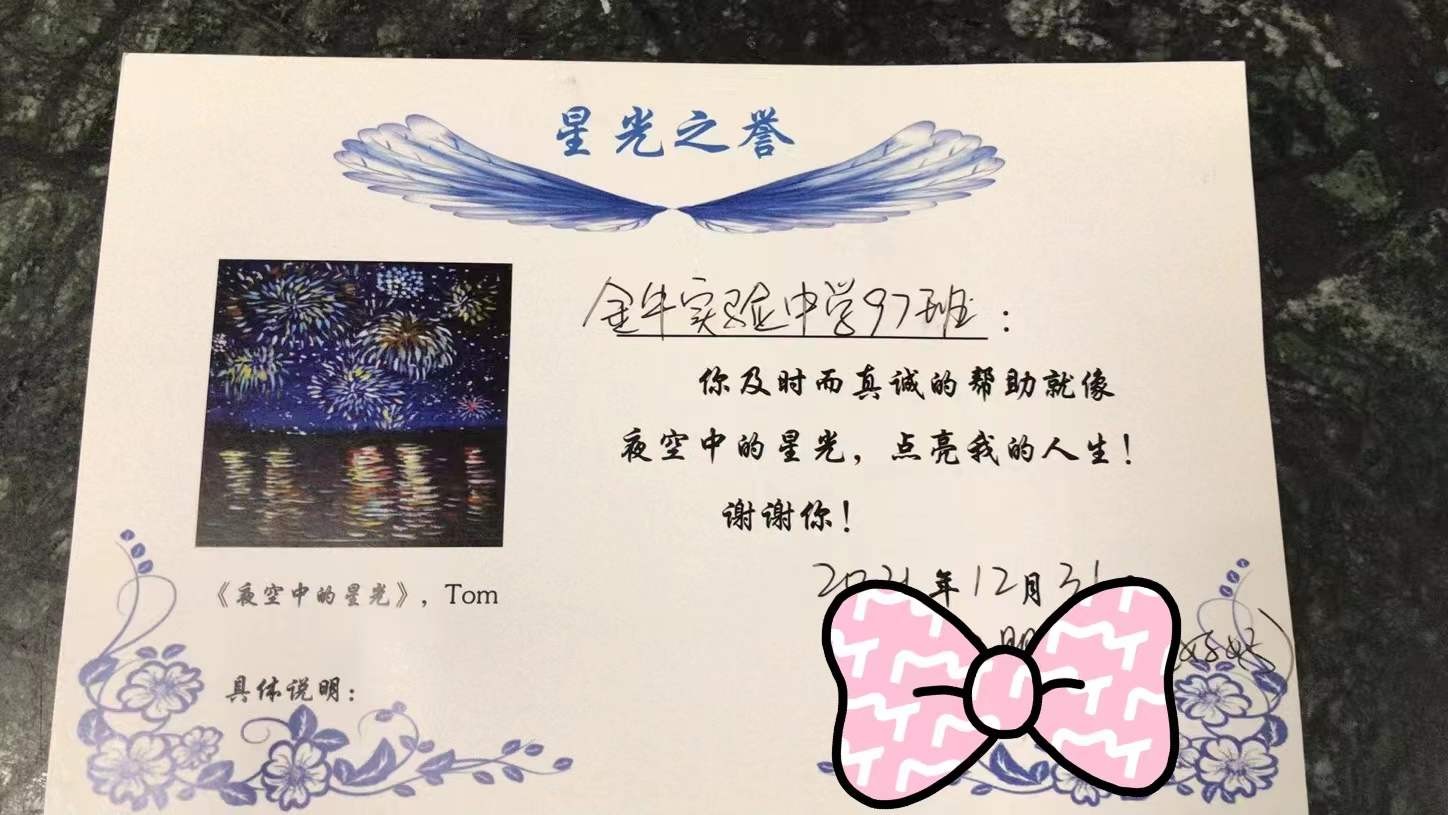 星光之誉
金牛实验中学97班：
你及时而真诚的帮助就像
夜空中的星光，点亮我的人生！
谢谢你！
2021年12月31
《夜空中的星光》，Tom
具体说明：